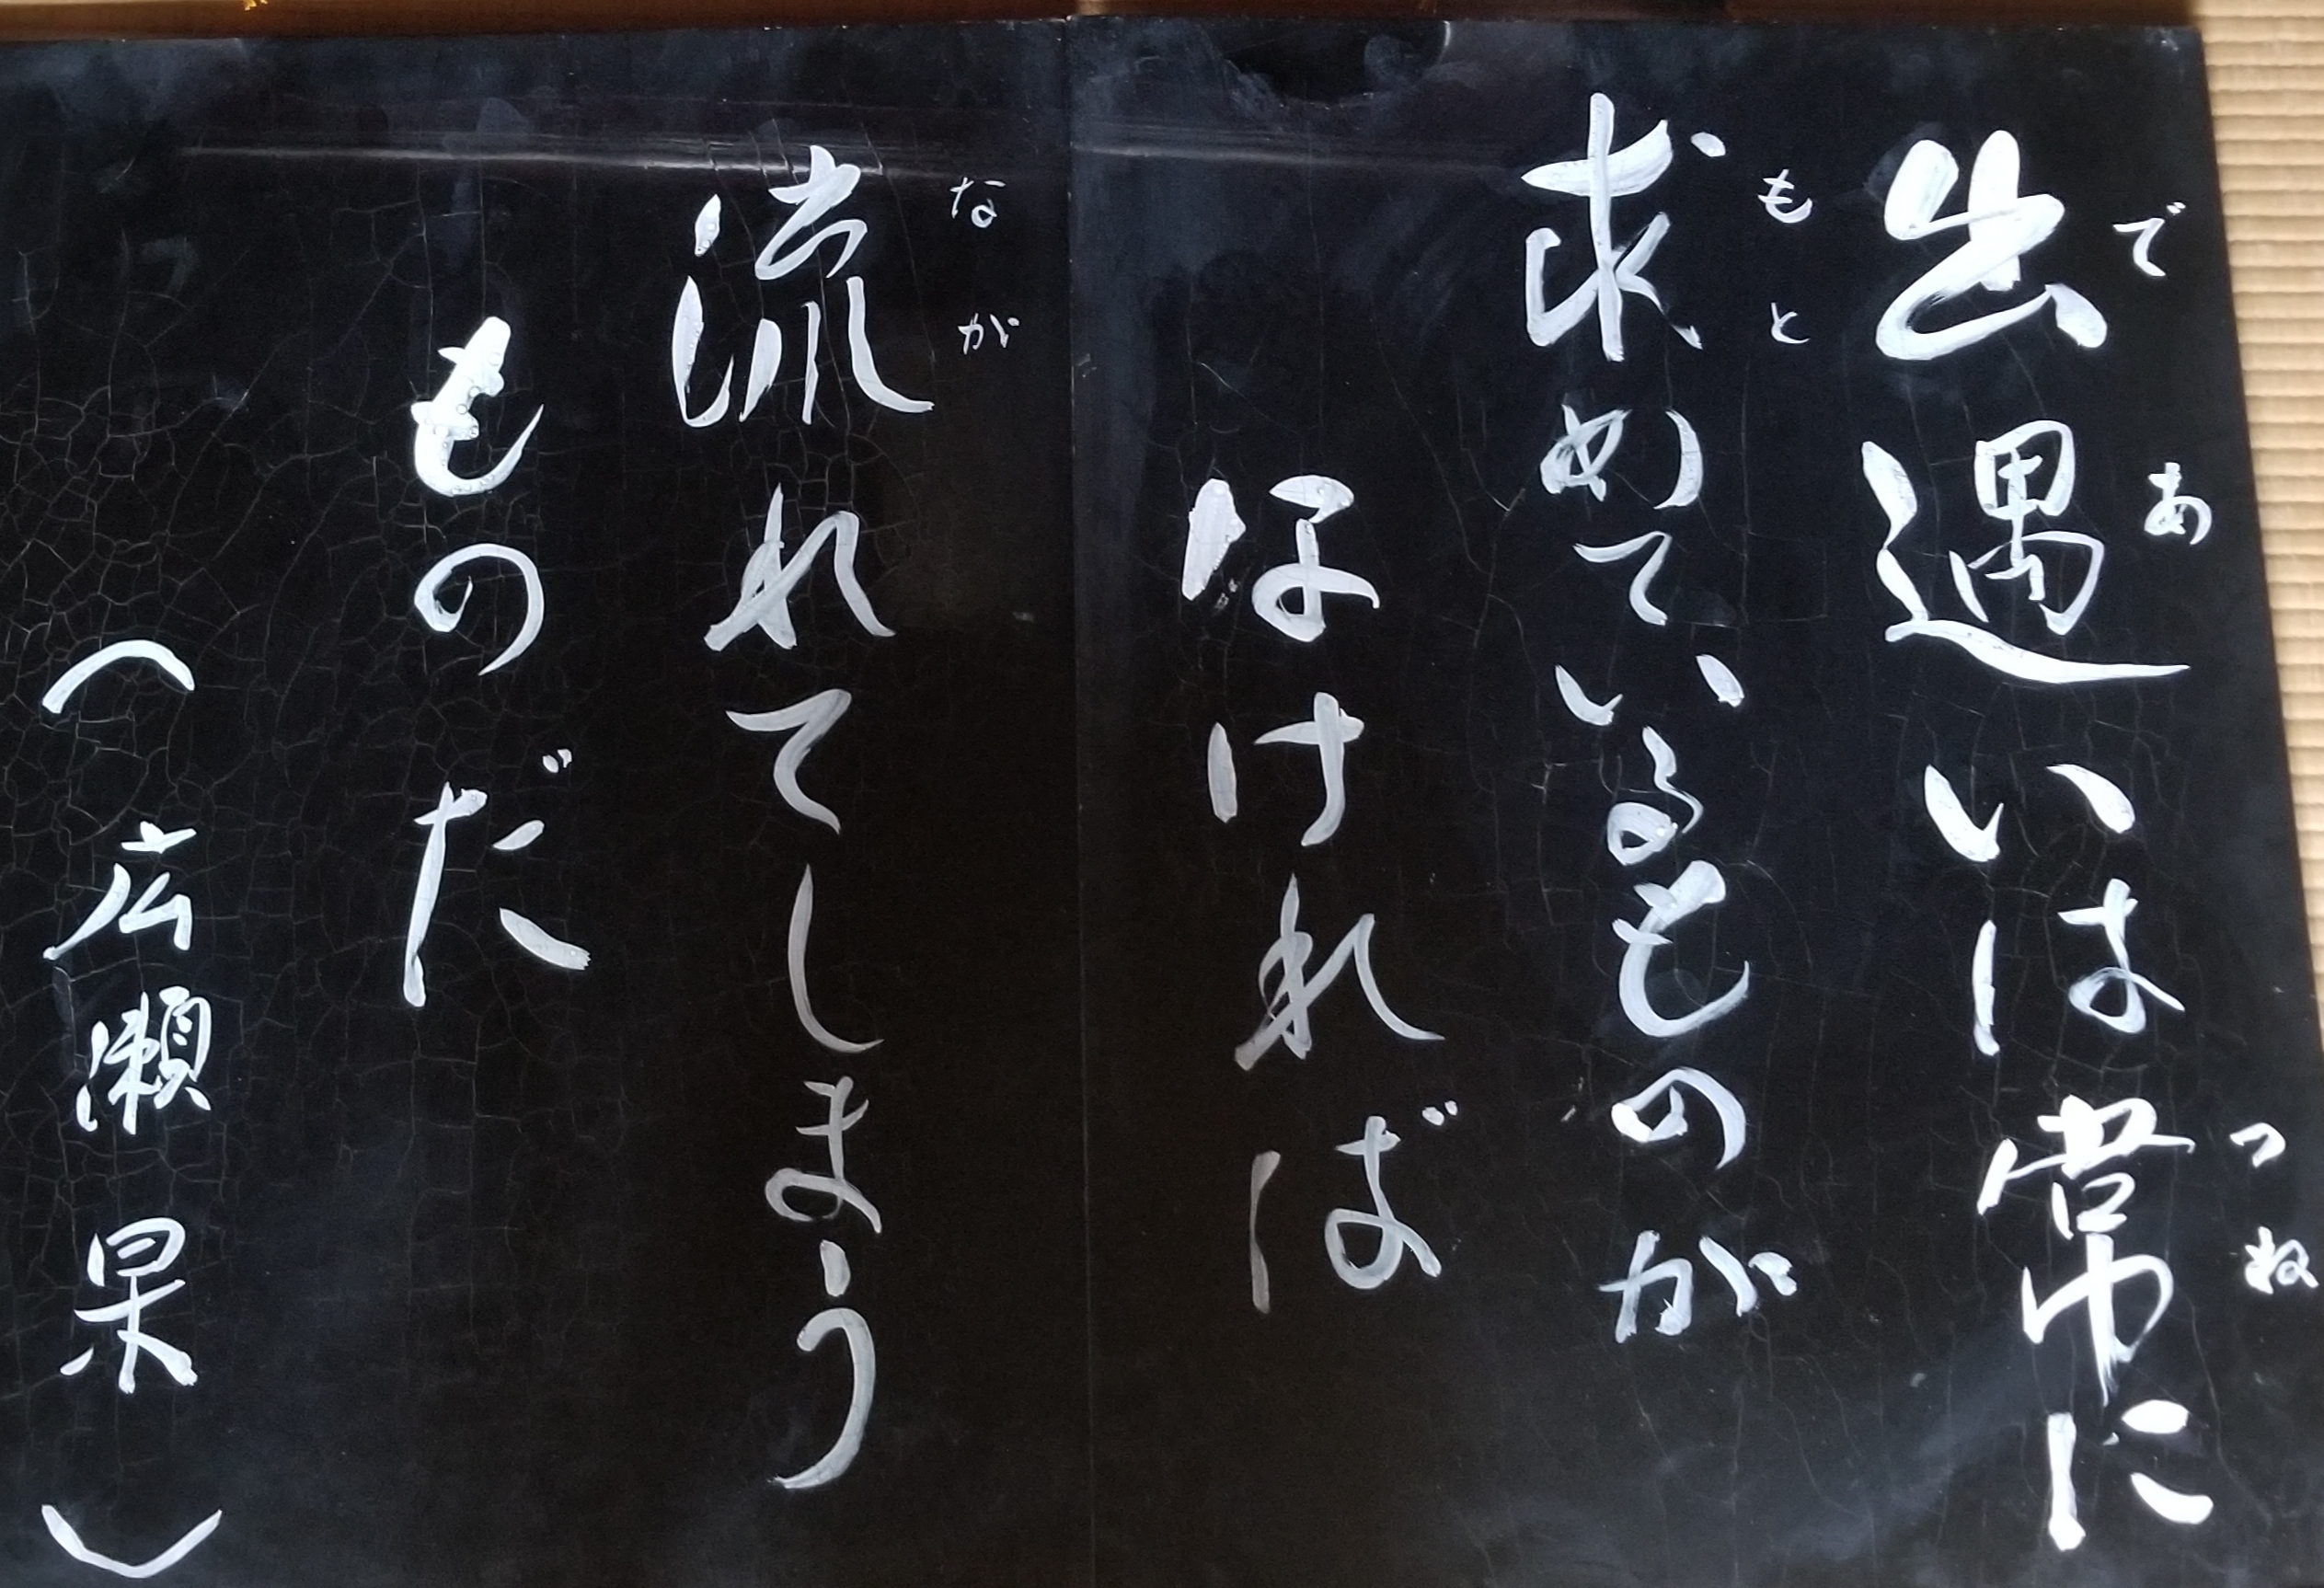 出遇いは常に
であ
つね
求めているものが
もと
なければ
流れてしまう
なが
ものだ
（広瀬杲）